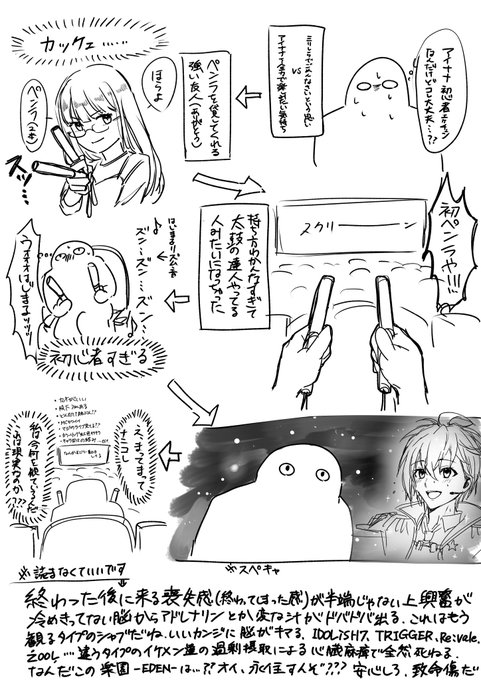 アイナナ初心者オタクイン
なんだけどコレ大丈夫…??
VS
カッケェ……
ほらよ
ペンラを貸してくれる
強い友人(ありがとう)
ペンラ(2本)
スッ…
初ペンラや!!!
スクリーーーン
持ち方わかんなすぎて
太鼓の達人やってる
人みたいになっちゃった
はじまるリズム音
ズン…ズン…ズン…
ウオオはじまるッッ!!
初心者すぎる
※スペキャ
えまってまって
ナニコレ?
私は今何を観ているんだ
これは現実なのか???
※読まなくていいです
終わった後に来る喪失感(終わってしまった感)が半端じゃない上興奮が
冷めきってない脳からアドレナリンとか変な汁がドバドバ出る。これはもう
観るタイプのシャブだね。いいカンジに脳がキマる。IDOLiSH7、TRIGGER、Re:vale、
ŹOOĻ…違うタイプのイケメン達の過剰摂取による心臓麻痺で全然死ねる。
なんだこの楽園-EDEN-は…?? オイ、永住すんぞ??? 安心しろ、致命傷だ